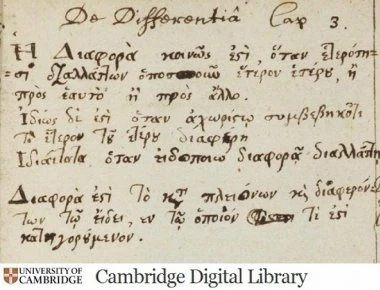 De Differentiâ Cap 3.
Ἡ Διαφορὰ κοινῶς ἐστὶ, ὅταν ἑτερότη-
ἕτερον ἑτέρου, ἢ
πρὸς ἑαυτὸ ἢ πρὸς ἄλλο.
Ἰδίως δὲ ἐστὶ ὅταν ἀχωρίστῳ συμβεβηκότι
τὸ ἕτερον τοῦ ἑτέρου διαφέρη
Ἰδιαίτατα ὅταν εἰδοποιῷ διαφορᾷ
Διαφορὰ ἐστὶ τὸ κατὰ πλειόνων καὶ διαφερόν-
των τῷ εἴδει, ἐν τῷ ὁποῖον τὶ ἐστὶ
κατηγορούμενον.
UNIVERSITY OF CAMBRIDGE
Cambridge Digital Library